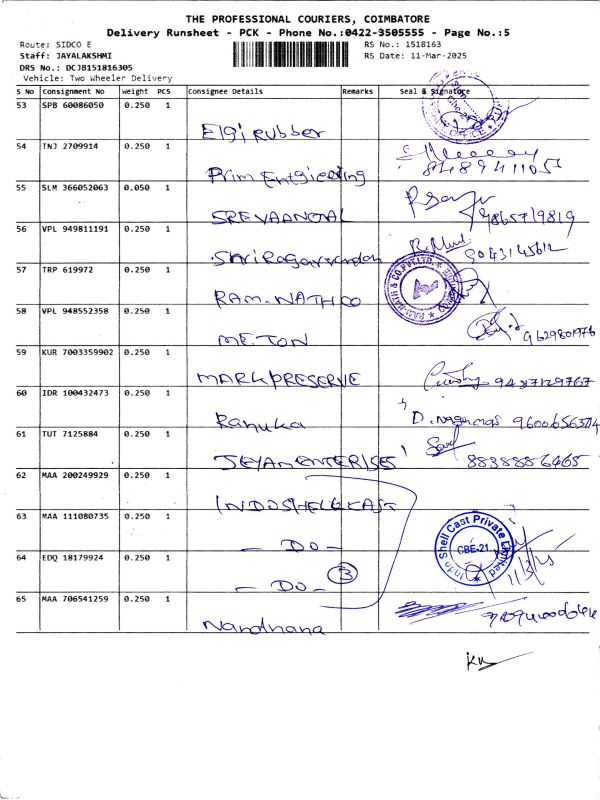 THE PROFESSIONAL COURIERS, COIMBATORE
Delivery Runsheet - PCK - Phone No.:0422-3505555 - Page No.:5
Route: SIDCO E
RS No.: 1518163
Staff: JAYALAKSHMI
RS Date: 11-Mar-2025
DRS No.: DCJB151816305
Vehicle: Two Wheeler Delivery
S No Consignment No Weight PCS Consignee Details Remarks Seal & Signature
53 SPB 60086050 0.250 1
Elgi Rubber
54 TNJ 2709914 0.250 1
8489411057
Prim
55 SLM 366052063 0.050 1
9865719819
56 VPL 949811191 0.250 1
9043145612
57 TRP 619972 0.250 1
RAM-NATH & CO.PVT.LTD.
RAM.NATH CO
58 VPL 948552358 0.250 1
9629801976
METON
59 KUR 7003359902 0.250 1
MARK PRESERVE
9437129767
60 IDR 100432473 0.250 1
Ranuka
61 TUT 7125884 0.250 1
JEYAM ENTERISES
8838856465
62 MAA 200249929 0.250 1
INDOSHELL CAST
63 MAA 111080735 0.250 1
Indo Shell Cast Private Limited
CBE-21
- DO -
64 EDQ 18179924 0.250 1
11/3/25
- DO -
3
65 MAA 706541259 0.250 1
Nandhana